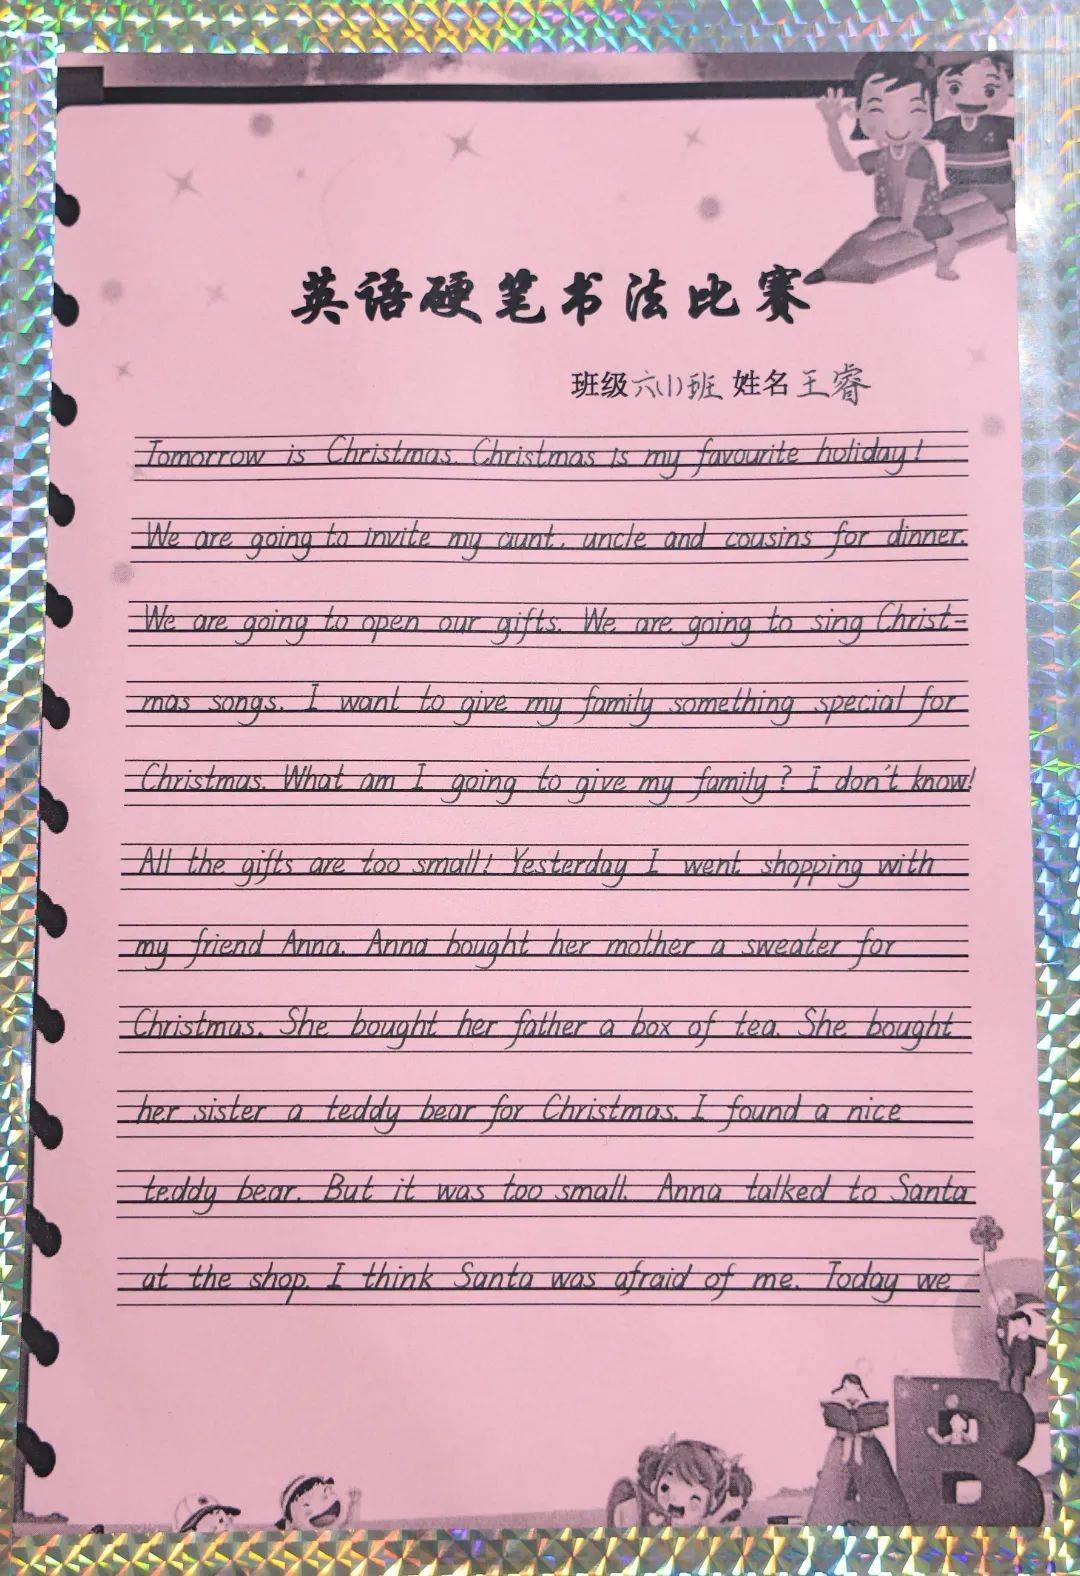 英语硬笔书法比赛
班级六(1)班 姓名王睿
Tomorrow is Christmas. Christmas is my favourite holiday!
We are going to invite my aunt, uncle and cousins for dinner.
We are going to open our gifts. We are going to sing Christ-
mas songs. I want to give my family something special for
Christmas. What am I going to give my family? I don't know!
All the gifts are too small! Yesterday I went shopping with
my friend Anna. Anna bought her mother a sweater for
Christmas. She bought her father a box of tea. She bought
her sister a teddy bear for Christmas. I found a nice
teddy bear. But it was too small. Anna talked to Santa
at the shop. I think Santa was afraid of me. Today we
A B